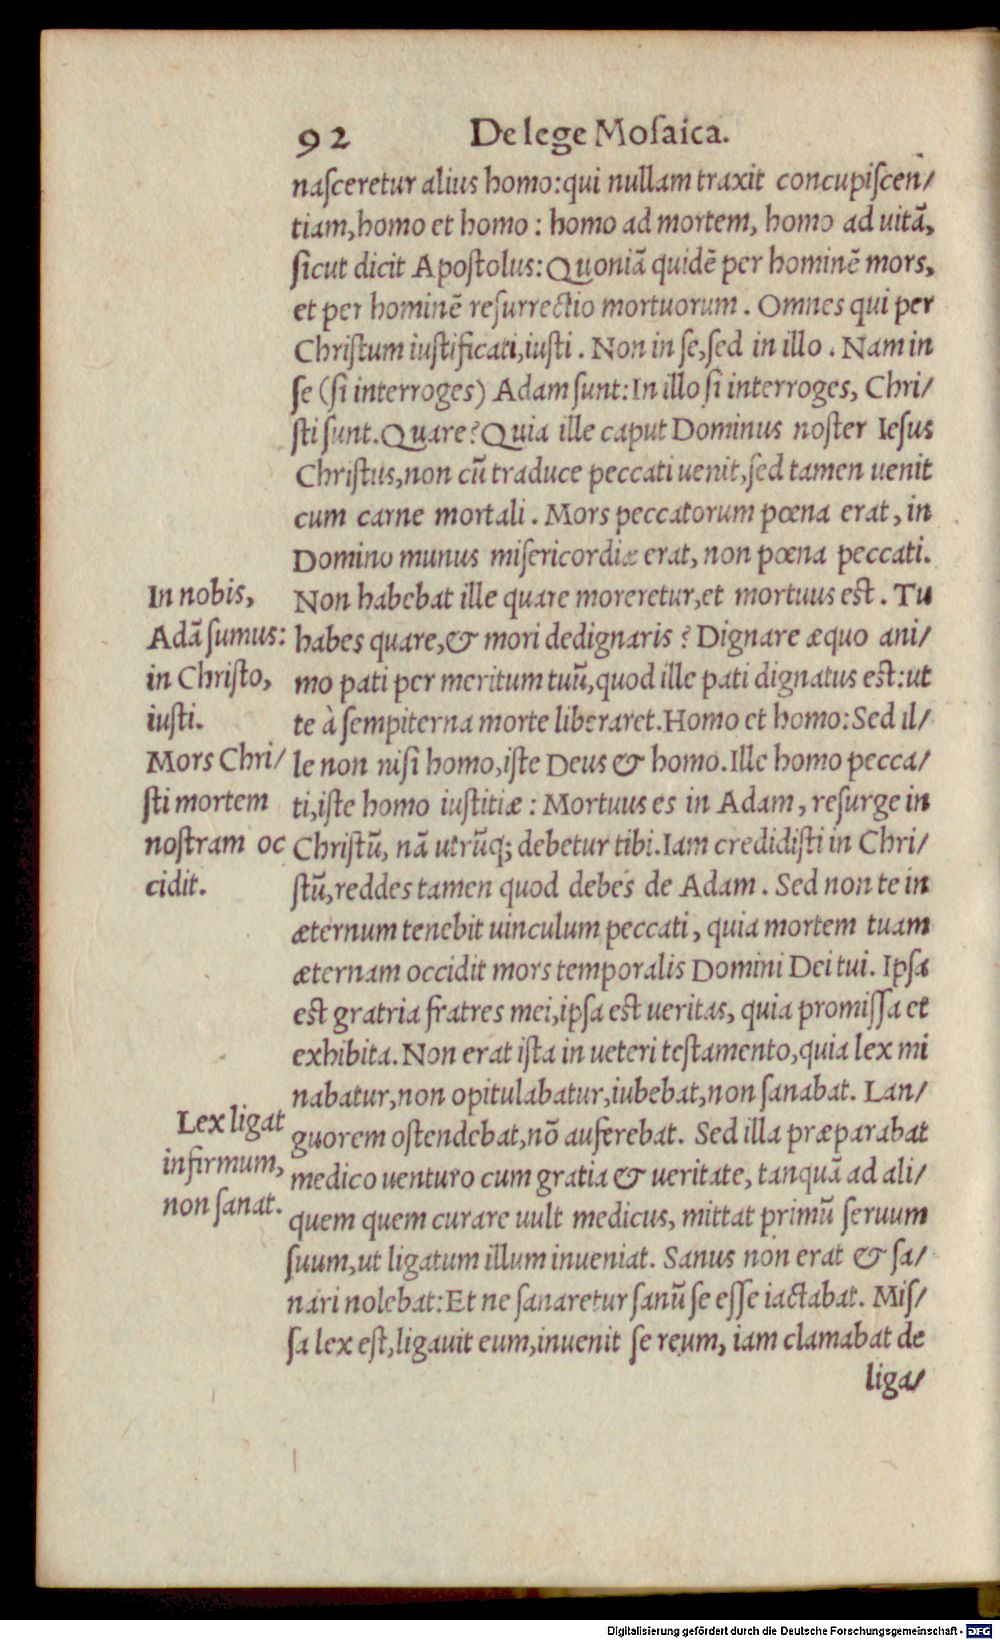 92 De lege Mosaica.
nasceretur alius homo:qui nullam traxit concupiscen/
tiam,homo et homo : homo ad mortem, homo ad uitā,
sicut dicit Apostolus:Quoniā quidē per hominē mors,
et per hominē resurrectio mortuorum . Omnes qui per
Christum iustificati,iusti . Non in se,sed in illo . Nam in
se (si interroges) Adam sunt:In illo si interroges, Chri/
sti sunt.Quare?Quia ille caput Dominus noster Iesus
Christus,non cū traduce peccati uenit,sed tamen uenit
cum carne mortali . Mors peccatorum pœna erat , in
Domino munus misericordiæ erat, non pœna peccati.
Non habebat ille quare moreretur,et mortuus est . Tu
habes quare,& mori dedignaris ? Dignare æquo ani/
mo pati per meritum tuū,quod ille pati dignatus est:ut
te à sempiterna morte liberaret.Homo et homo:Sed il/
le non nisi homo,iste Deus & homo.Ille homo pecca/
ti,iste homo iustitiæ : Mortuus es in Adam , resurge in
Christū, nā utrūq; debetur tibi.Iam credidisti in Chri/
stū,reddes tamen quod debes de Adam . Sed non te in
æternum tenebit uinculum peccati , quia mortem tuam
æternam occidit mors temporalis Domini Dei tui. Ipsa
est gratria fratres mei,ipsa est ueritas, quia promissa et
exhibita. Non erat ista in ueteri testamento,quia lex mi
nabatur,non opitulabatur,iubebat,non sanabat. Lan/
guorem ostendebat,nō auferebat. Sed illa præparabat
medico uenturo cum gratia & ueritate, tanquā ad ali/
quem quem curare uult medicus, mittat primū seruum
suum,ut ligatum illum inueniat. Sanus non erat & sa/
nari nolebat:Et ne sanaretur sanū se esse iactabat. Mis/
sa lex est,ligauit eum,inuenit se reum, iam clamabat de
liga/
In nobis,
Adā sumus:
in Christo,
iusti.
Mors Chri/
sti mortem
nostram oc
cidit.
Lex ligat
infirmum,
non sanat.
Digitalisierung gefördert durch die Deutsche Forschungsgemeinschaft - DFG